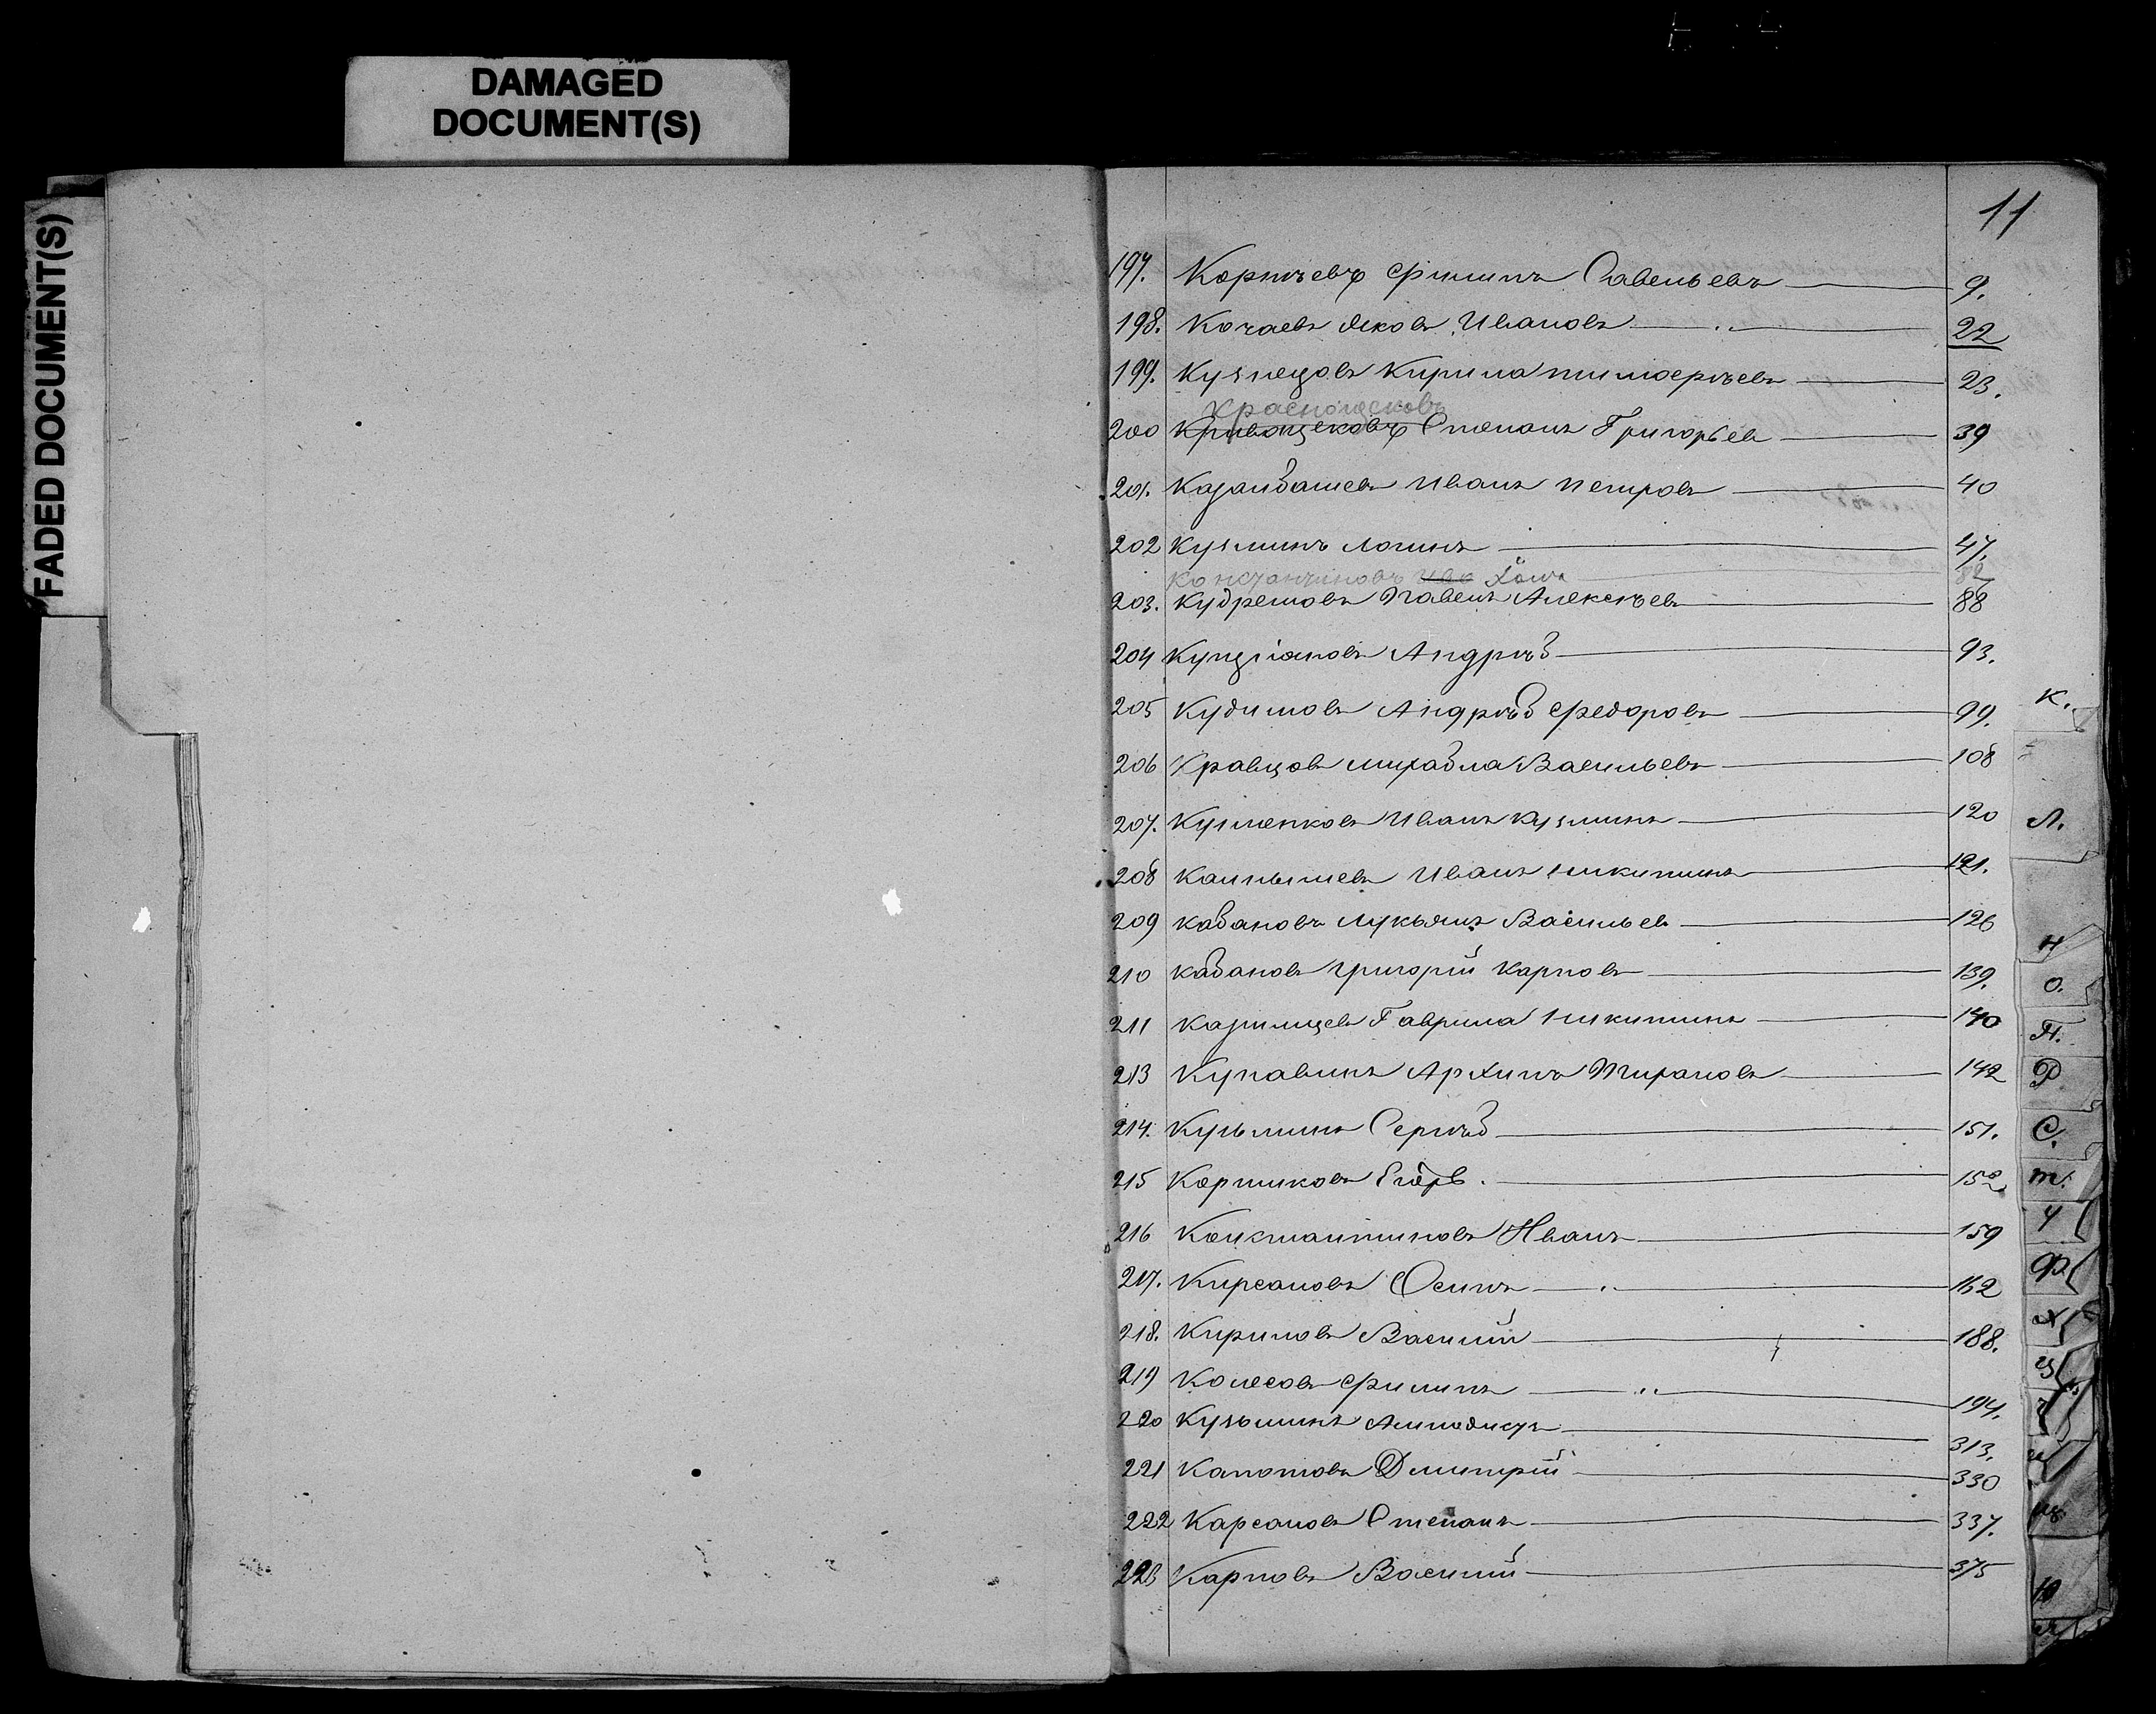 DAMAGED
DOCUMENT(S)
FADED DOCUMENT(S)
11
197. Корнѣевъ Филипъ Савельевъ 9.
198. Кочаевъ Яковъ Ивановъ 22
199. Кузнецовъ Кирила Тимофѣевъ 23.
Краснощековъ
200 Кривощековъ Степанъ Григорьев 39
201. Казанбашевъ Иванъ Петровъ 40
202 Кузминъ Логинъ 47.
Константиновъ Ива 82
203. Кудрешовъ Павелъ Алексѣевъ 88
204 Андрѣй 93.
205 Кудимовъ Андрѣй Федоровъ 99.
206 Кравцовъ Михайла Васильевъ 108
207. Кузменковъ Иванъ Кузминъ 120
208 Калмышевъ Иванъ Никитинъ 121.
209 Кабановъ Лукьянъ Васильев 126
210 Кабановъ Григорій Карповъ 139.
211 Казинцевъ Гаврила Никитинъ 140
213 Купавинъ Архипъ 142
214. Кузьминъ Сергѣй 151.
215 Коршиковъ Егоръ. 152
216 Константиновъ Иванъ 159
217. Кирсановъ Осипъ 162
218. Кириловъ Василій 188.
219 Колесовъ Филипъ 194.
220 Кузьминъ 313.
221 Капотовъ Дмитрій 330
222 Карсановъ Степанъ 337.
223 Карповъ Василій 375
К.
Л.
Н
О.
П.
Р
С.
Т.
У
Ф.
Х
Ц
Ч
Ш
Щ
Ю